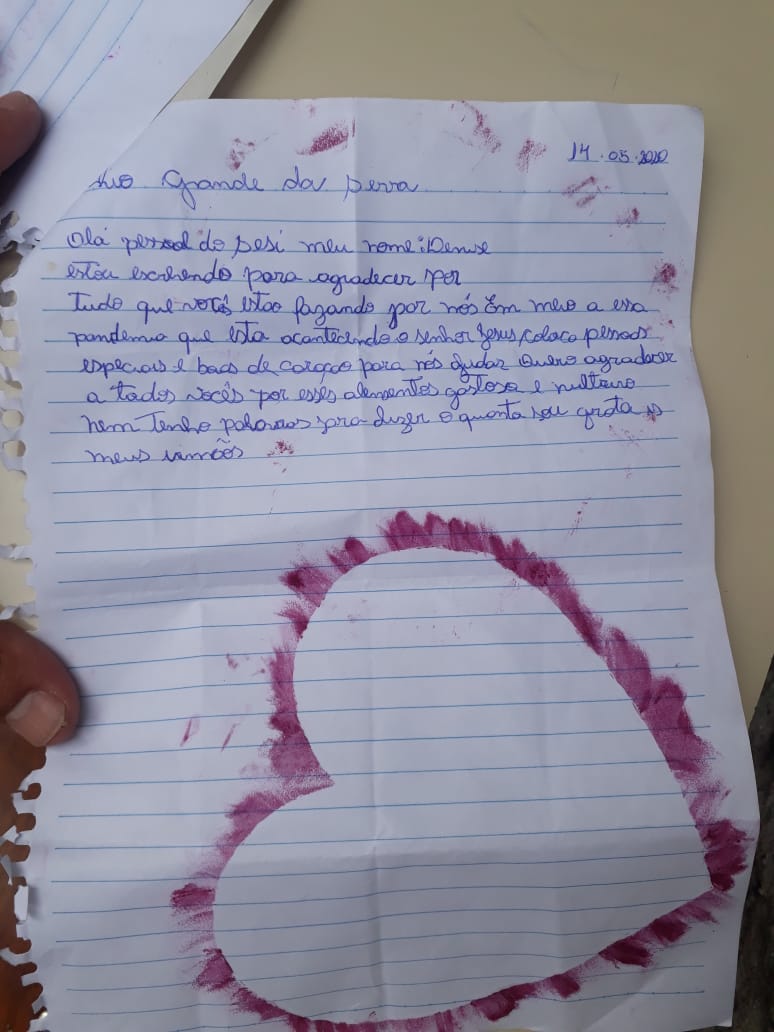 14.05.2020
Grande da serra
Olá pessoal do sesi meu nome: Denise
estou escrevendo para agradecer por
tudo que vocês estão fazendo por nós Em meio a essa
pandemia que esta acontecendo o senhor Jesus coloco pessoas
especiais e boas de coração para nós ajudar Quero agradecer
a todos vocês por esses alementos gostoso e nultrivo
nem Tenho palavras pra dizer o quanta sou grata
meus irmãos